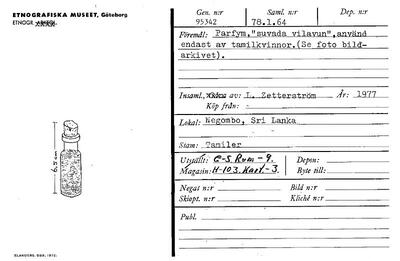 ETNOGRAFISKA MUSEET, Göteborg
ETNOGR
6,5 cm
ELANDERS, GBG, 1972.
Gen. n:r 95342
Saml. n:r 78.1.64
Dep. n:r
Föremål: Parfym,"suvada vilavun",använd
endast av tamilkvinnor.(Se foto bild-
arkivet).
Insaml. av: L. Zetterström År: 1977
Köp från: -
Lokal: Negombo, Sri Lanka
Stam: Tamiler
Utställt: C-S. Rum-9. Depon:
Magasin: H-103. Kart.-3. Byte till:
Negat n:r Bild n:r
Skiopt. n:r Kliché n:r
Publ.